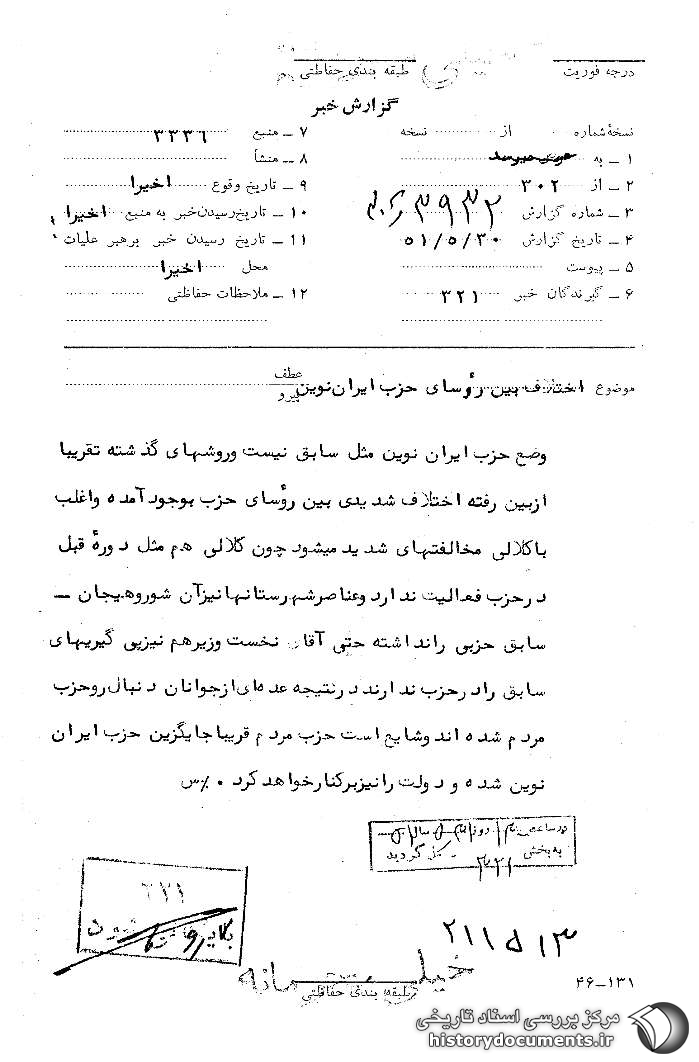 درجه فوریت
طبقه بندی حفاظتی
گزارش خبر
نسخهٔ شماره از نسخه
۱ ـ به
۲ ـ از ۳۰۲
۳ ـ شماره گزارش
۴ ـ تاریخ گزارش ۵۱/۵/۳۰
۵ ـ پیوست
۶ ـ گیرندگان خبر ۳۲۱
۷ ـ منبع ۳۲۳۶
۸ ـ منشأ
۹ ـ تاریخ وقوع اخیرا
۱۰ ـ تاریخ رسیدن خبر به منبع اخیرا
۱۱ ـ تاریخ رسیدن خبر برهبر علیات
محل اخیرا
۱۲ ـ ملاحظات حفاظتی
موضوع اختلاف بین رؤسای حزب ایران نوین
عطف
پیرو
وضع حزب ایران نوین مثل سابق نیست وروشهای گذشته تقریبا
ازبین رفته اختلاف شدیدی بین رؤسای حزب بوجود آمده واغلب
باکلالی مخالفتهای شدید میشود چون کلالی هم مثل دورهٔ قبل
درحزب فعالیت ندارد وعناصر شهرستانها نیزآن شوروهیجان ـ
سابق حزبی رانداشته حتی آقای نخست وزیرهم نیزپی گیریهای
سابق رادرحزب ندارند درنتیجه عده‌ای ازجوانان دنبال روحزب
مردم شده اند وشایع است حزب مردم قریبا جایگزین حزب ایران
نوین شده و دولت را نیز برکنار خواهد کرد ۰
در ساعت روز
به بخش ۳۲۱
گردید
۳۲۱
بایگانی شود
خیلی محرمانه
طبقه بندی حفاظتی
۴۶-۱۳۱
مرکز بررسی اسناد تاریخی
historydocuments.ir